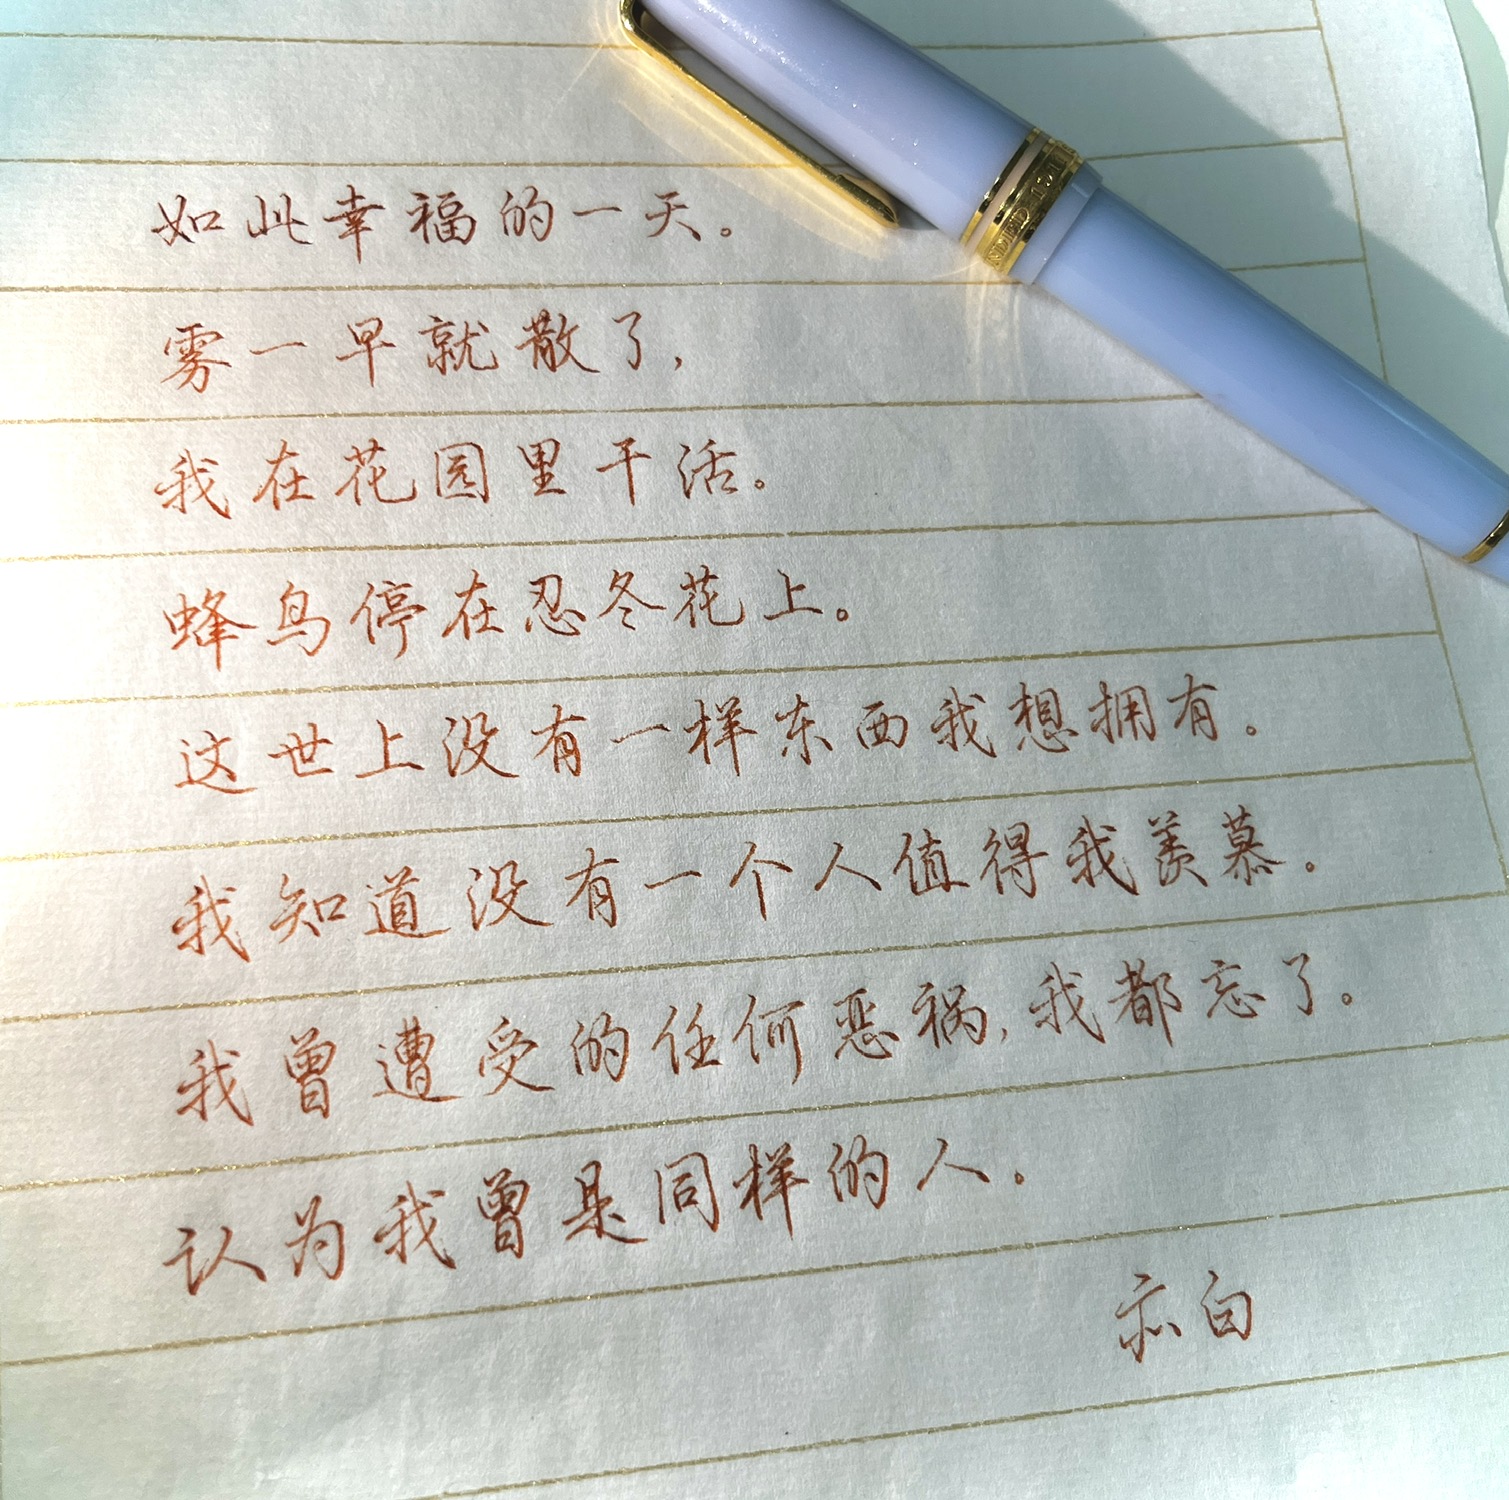 如此幸福的一天。
雾一早就散了，
我在花园里干活。
蜂鸟停在忍冬花上。
这世上没有一样东西我想拥有。
我知道没有一个人值得我羡慕。
我曾遭受的任何恶祸，我都忘了。
认为我曾是同样的人。
亦白